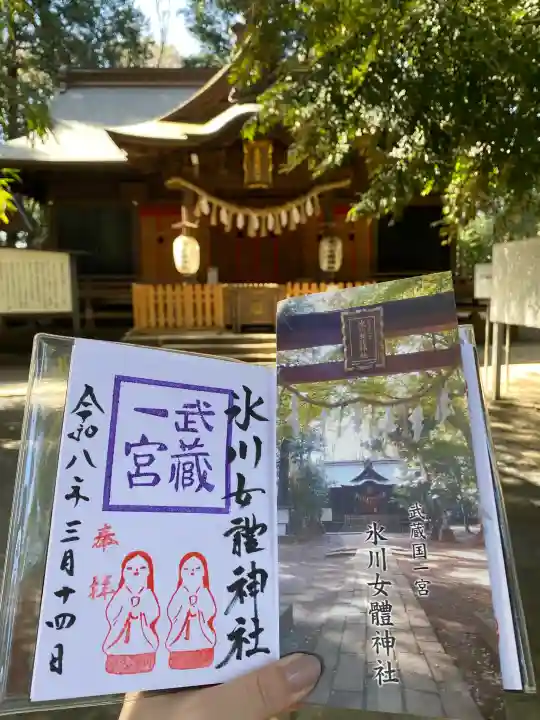 氷川女體神社
武蔵
一宮
奉拝
令和八年三月十四日
武蔵国一宮
氷川女體神社